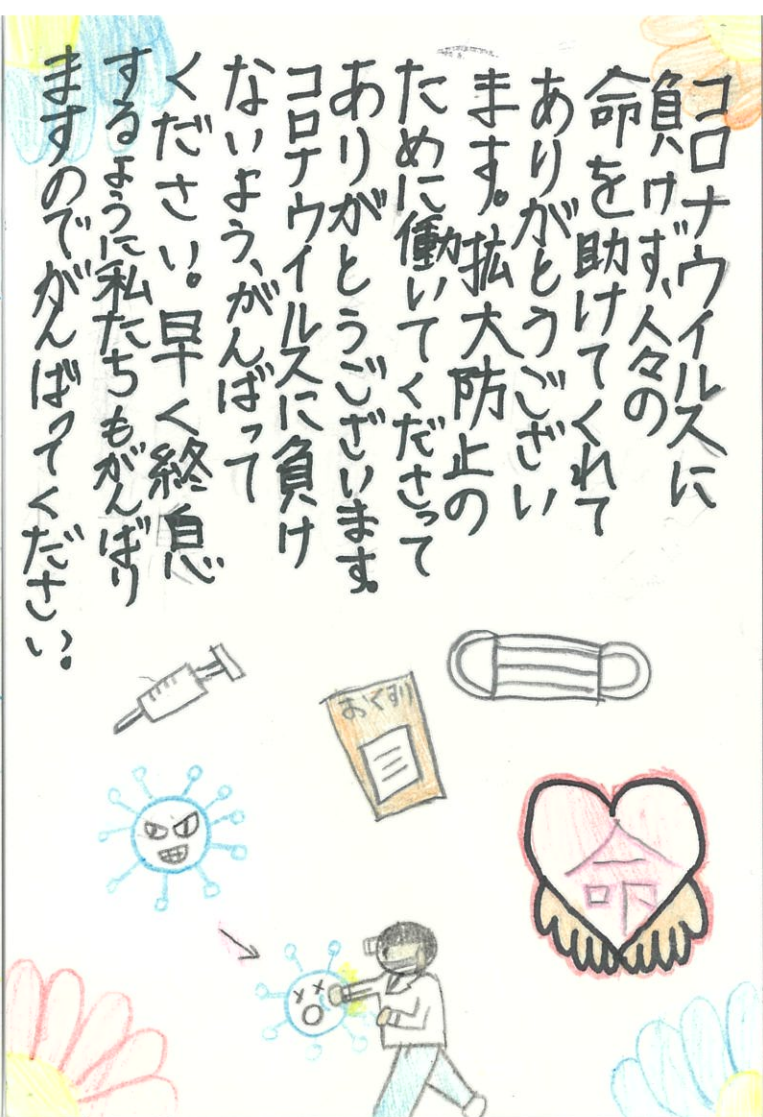 コロナウイルスに
負けず、人々の
命を助けてくれて
ありがとうござい
ます。拡大防止の
ために働いてくださって
ありがとうございます。
コロナウイルスに負け
ないよう、がんばって
ください。早く終息
するように私たちもがんばり
ますのでがんばってください。
おくすり
命